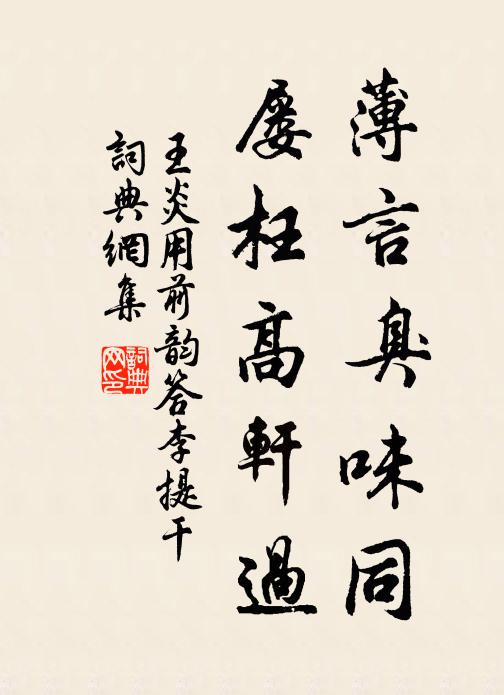 薄言臭味同
屡枉高軒過
王炎用前韵答李提干
詞典網集
詞典网印